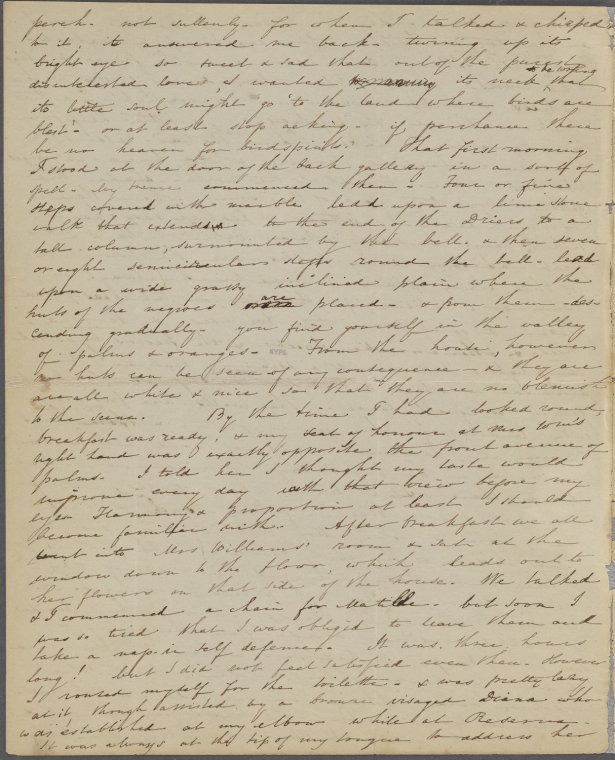 perch - not sullenly - for when I talked & chirped
to it, it answered me back - turning up its
bright eye so sweet & sad that out of the purest
disinterested love, I wanted its neck & be wrong that
its little soul might go "to the land where birds are
blest" - or at least stop aching - if perchance there
be no heaven for birdspirits. That first morning
I stood at the door of the back gallery in a sort of
spell - my trance commenced then - Four or five
steps covered with marble lead upon a lime stone
walk that extends to the end of the Driers to a
tall column, surmounted by the bell - & then seven
or eight semicircular steps round the bell - lead
upon a wide grassy inclined plain where the
huts of the negroes are placed - & from them - des-
cending gradually - you find yourself in the valley
of palms & oranges - From the house, however
no huts can be seen of any consequence - & they are
are all white & nice so that they are no blemish
to the scene. By the time I had looked round,
breakfast was ready, & my seat of honour at Mrs
right hand was exactly opposite the front avenue of
palms. I told her I thought my taste would
improve every day with that view before my
eyes Harmony & proportion at least I should
become familiar with. After breakfast we all
went into Mrs Williams' room & sat at the
window down to the floor, which leads out to
her flowers on that side of the house. We talked
& I commenced a chain for - but soon I
was so tired that I was obliged to leave them and
take a nap in self defence - It was three hours
long! but I did not feel satisfied even then - However
I roused myself for the toilette - & was pretty lazy
at it, though assisted by a bronze visaged Diana who
was established at my elbow while at Reserva -
It was always at the tip of my tongue to address her